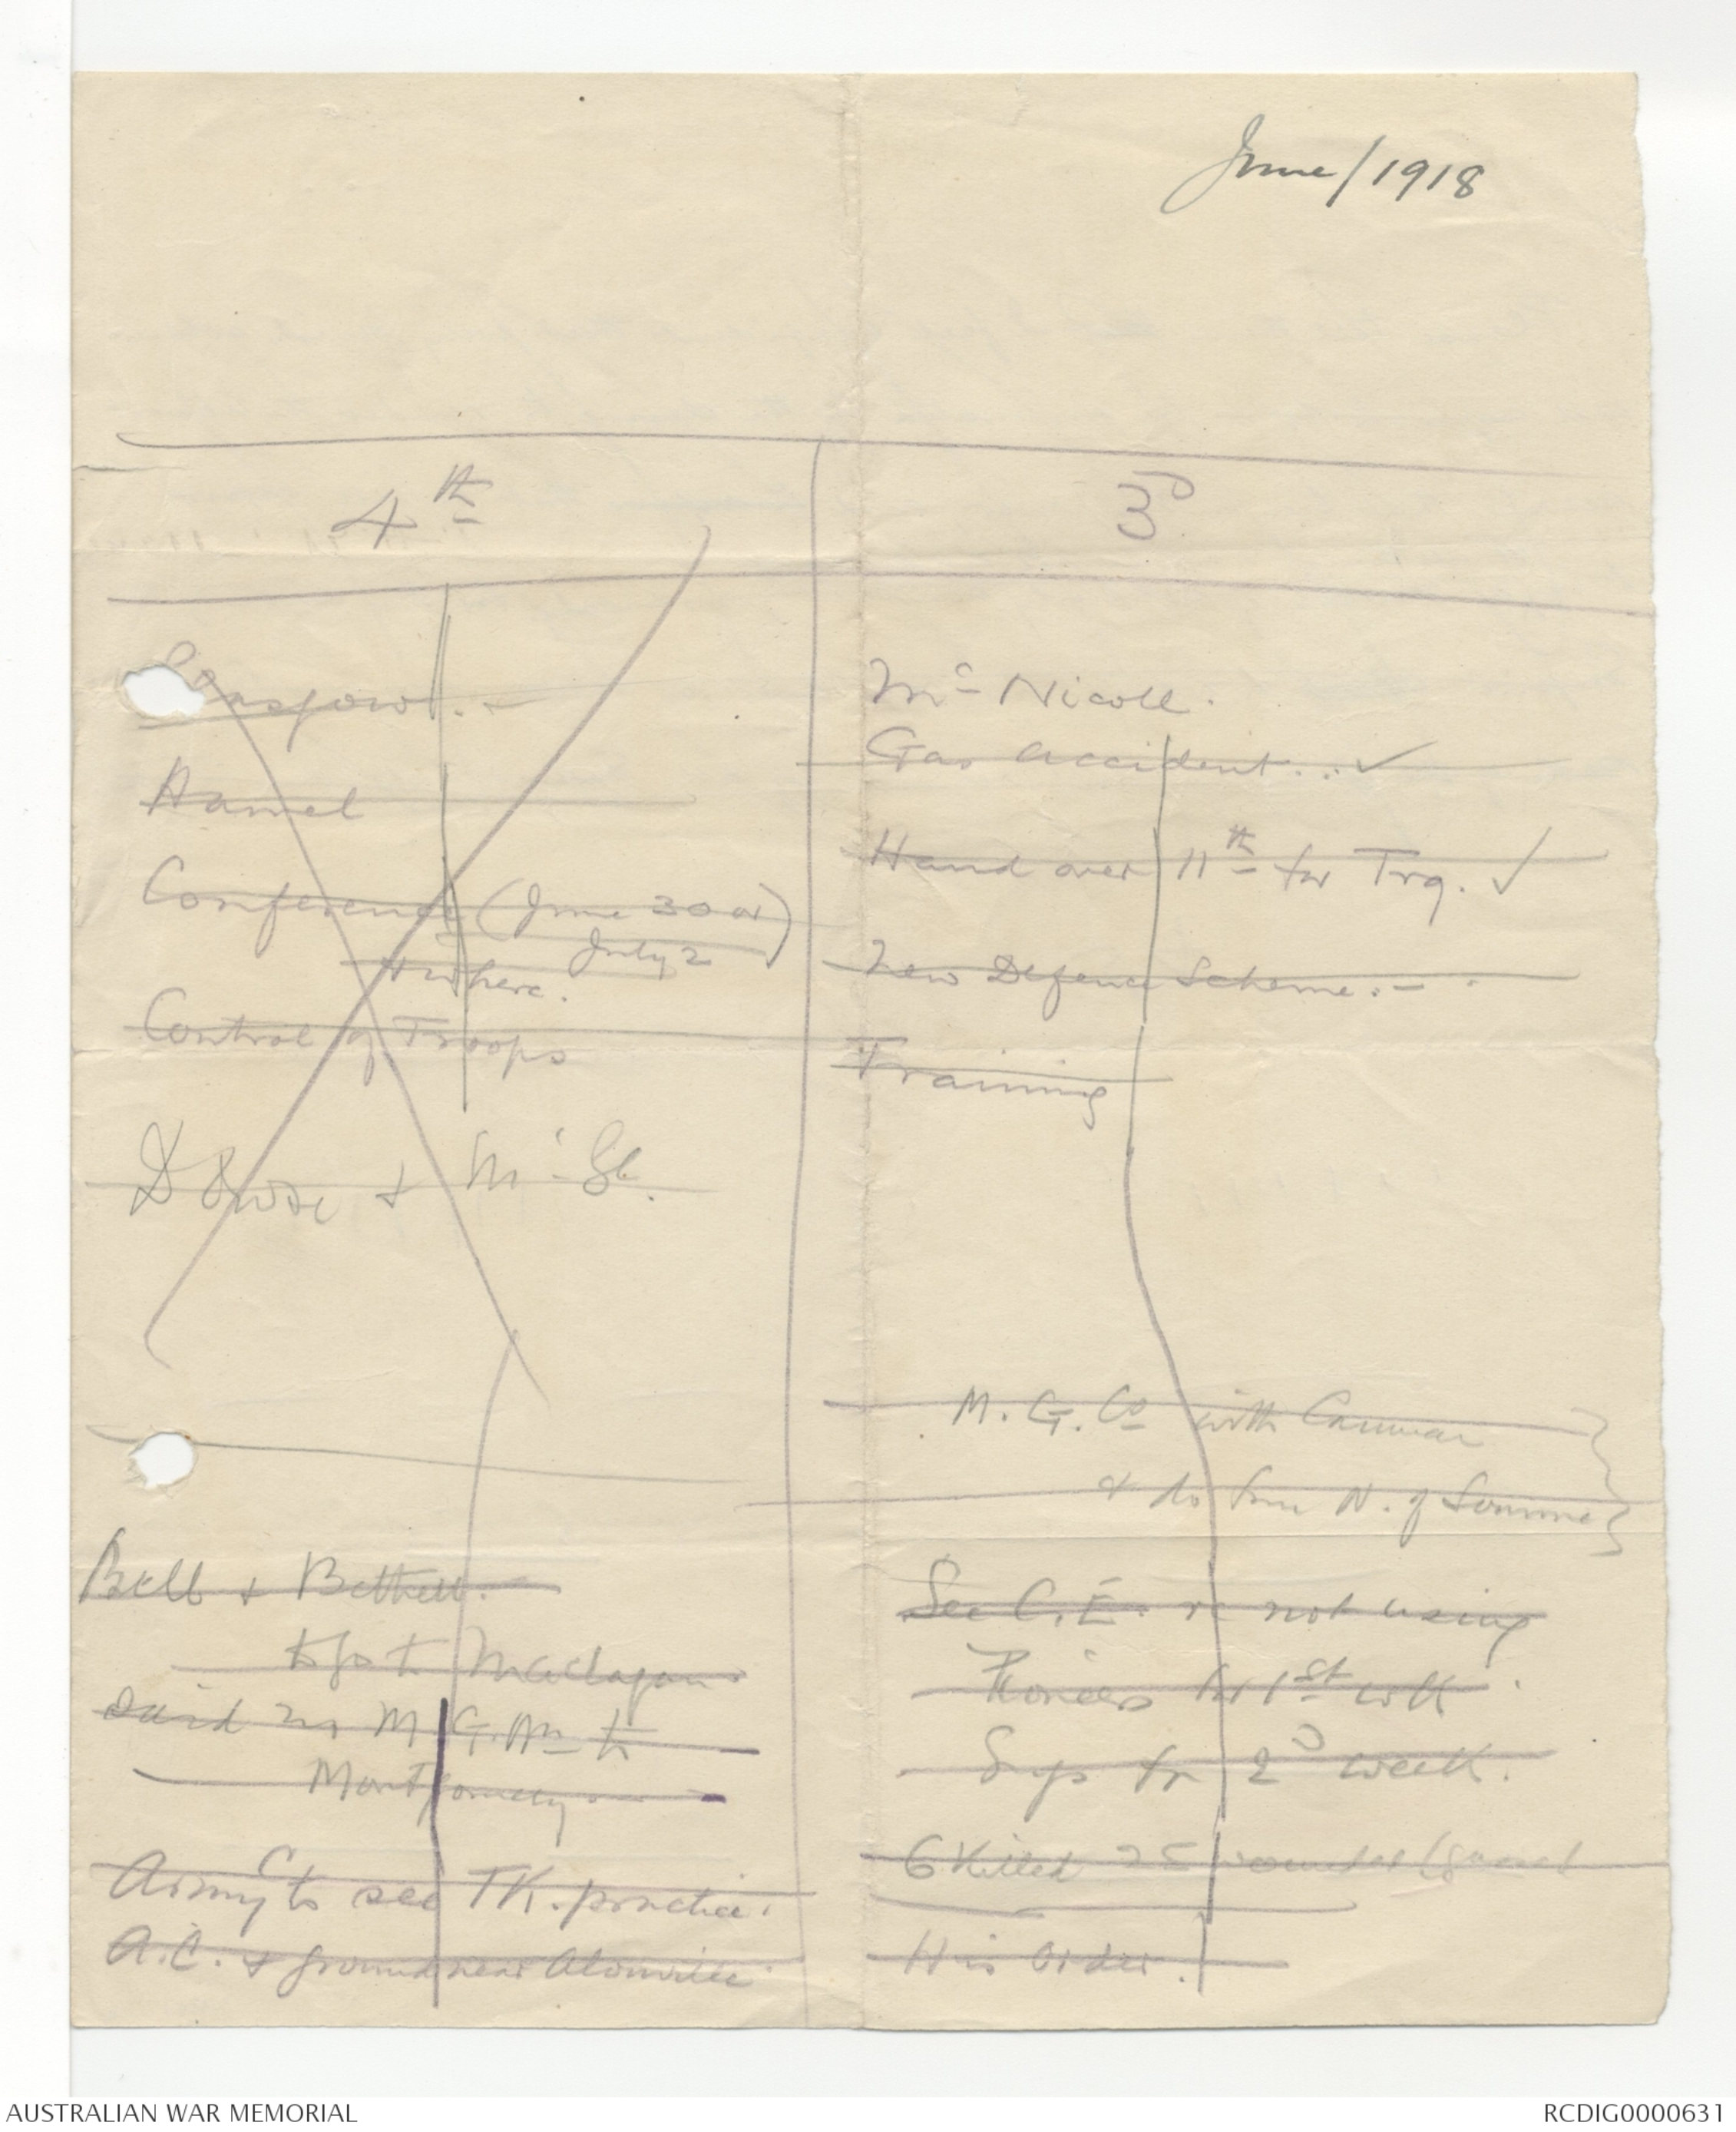 June/1918
4th
Hamel
Conference (June 30 or
July 2
where.
Control of Troops
& Mc Gl.
Bell & Bethell.
to go to Maclagan
David M.G. to
Montgomery
Army C to see TK. practice.
A.C. & ground near Alonville
3D
Mc Nicoll.
Gas accident... ✓
Hand over 11th for Trg. ✓
New Defence Scheme. -
Training
M. G. Co with
& do N. of Somme
See C.E. re not using
Pioneers for 1st week.
for 2D week.
6 Killed 25 wounded
His Order.
AUSTRALIAN WAR MEMORIAL
RCDIG0000631